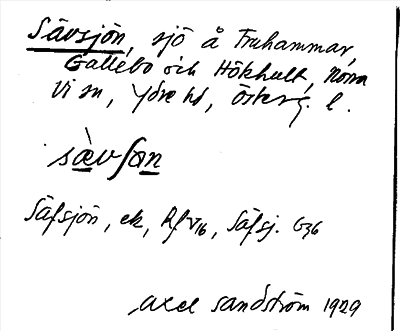 Sävsjön, sjö å Fruhammar,
Gallebo och Hökhult, Norra
Vi sn, Ydre hd, Österg. l.
sæ̀vʃɑn
Säfsjön, ek, Rfv16, Säfsj. G36
Axel Sandström 1929